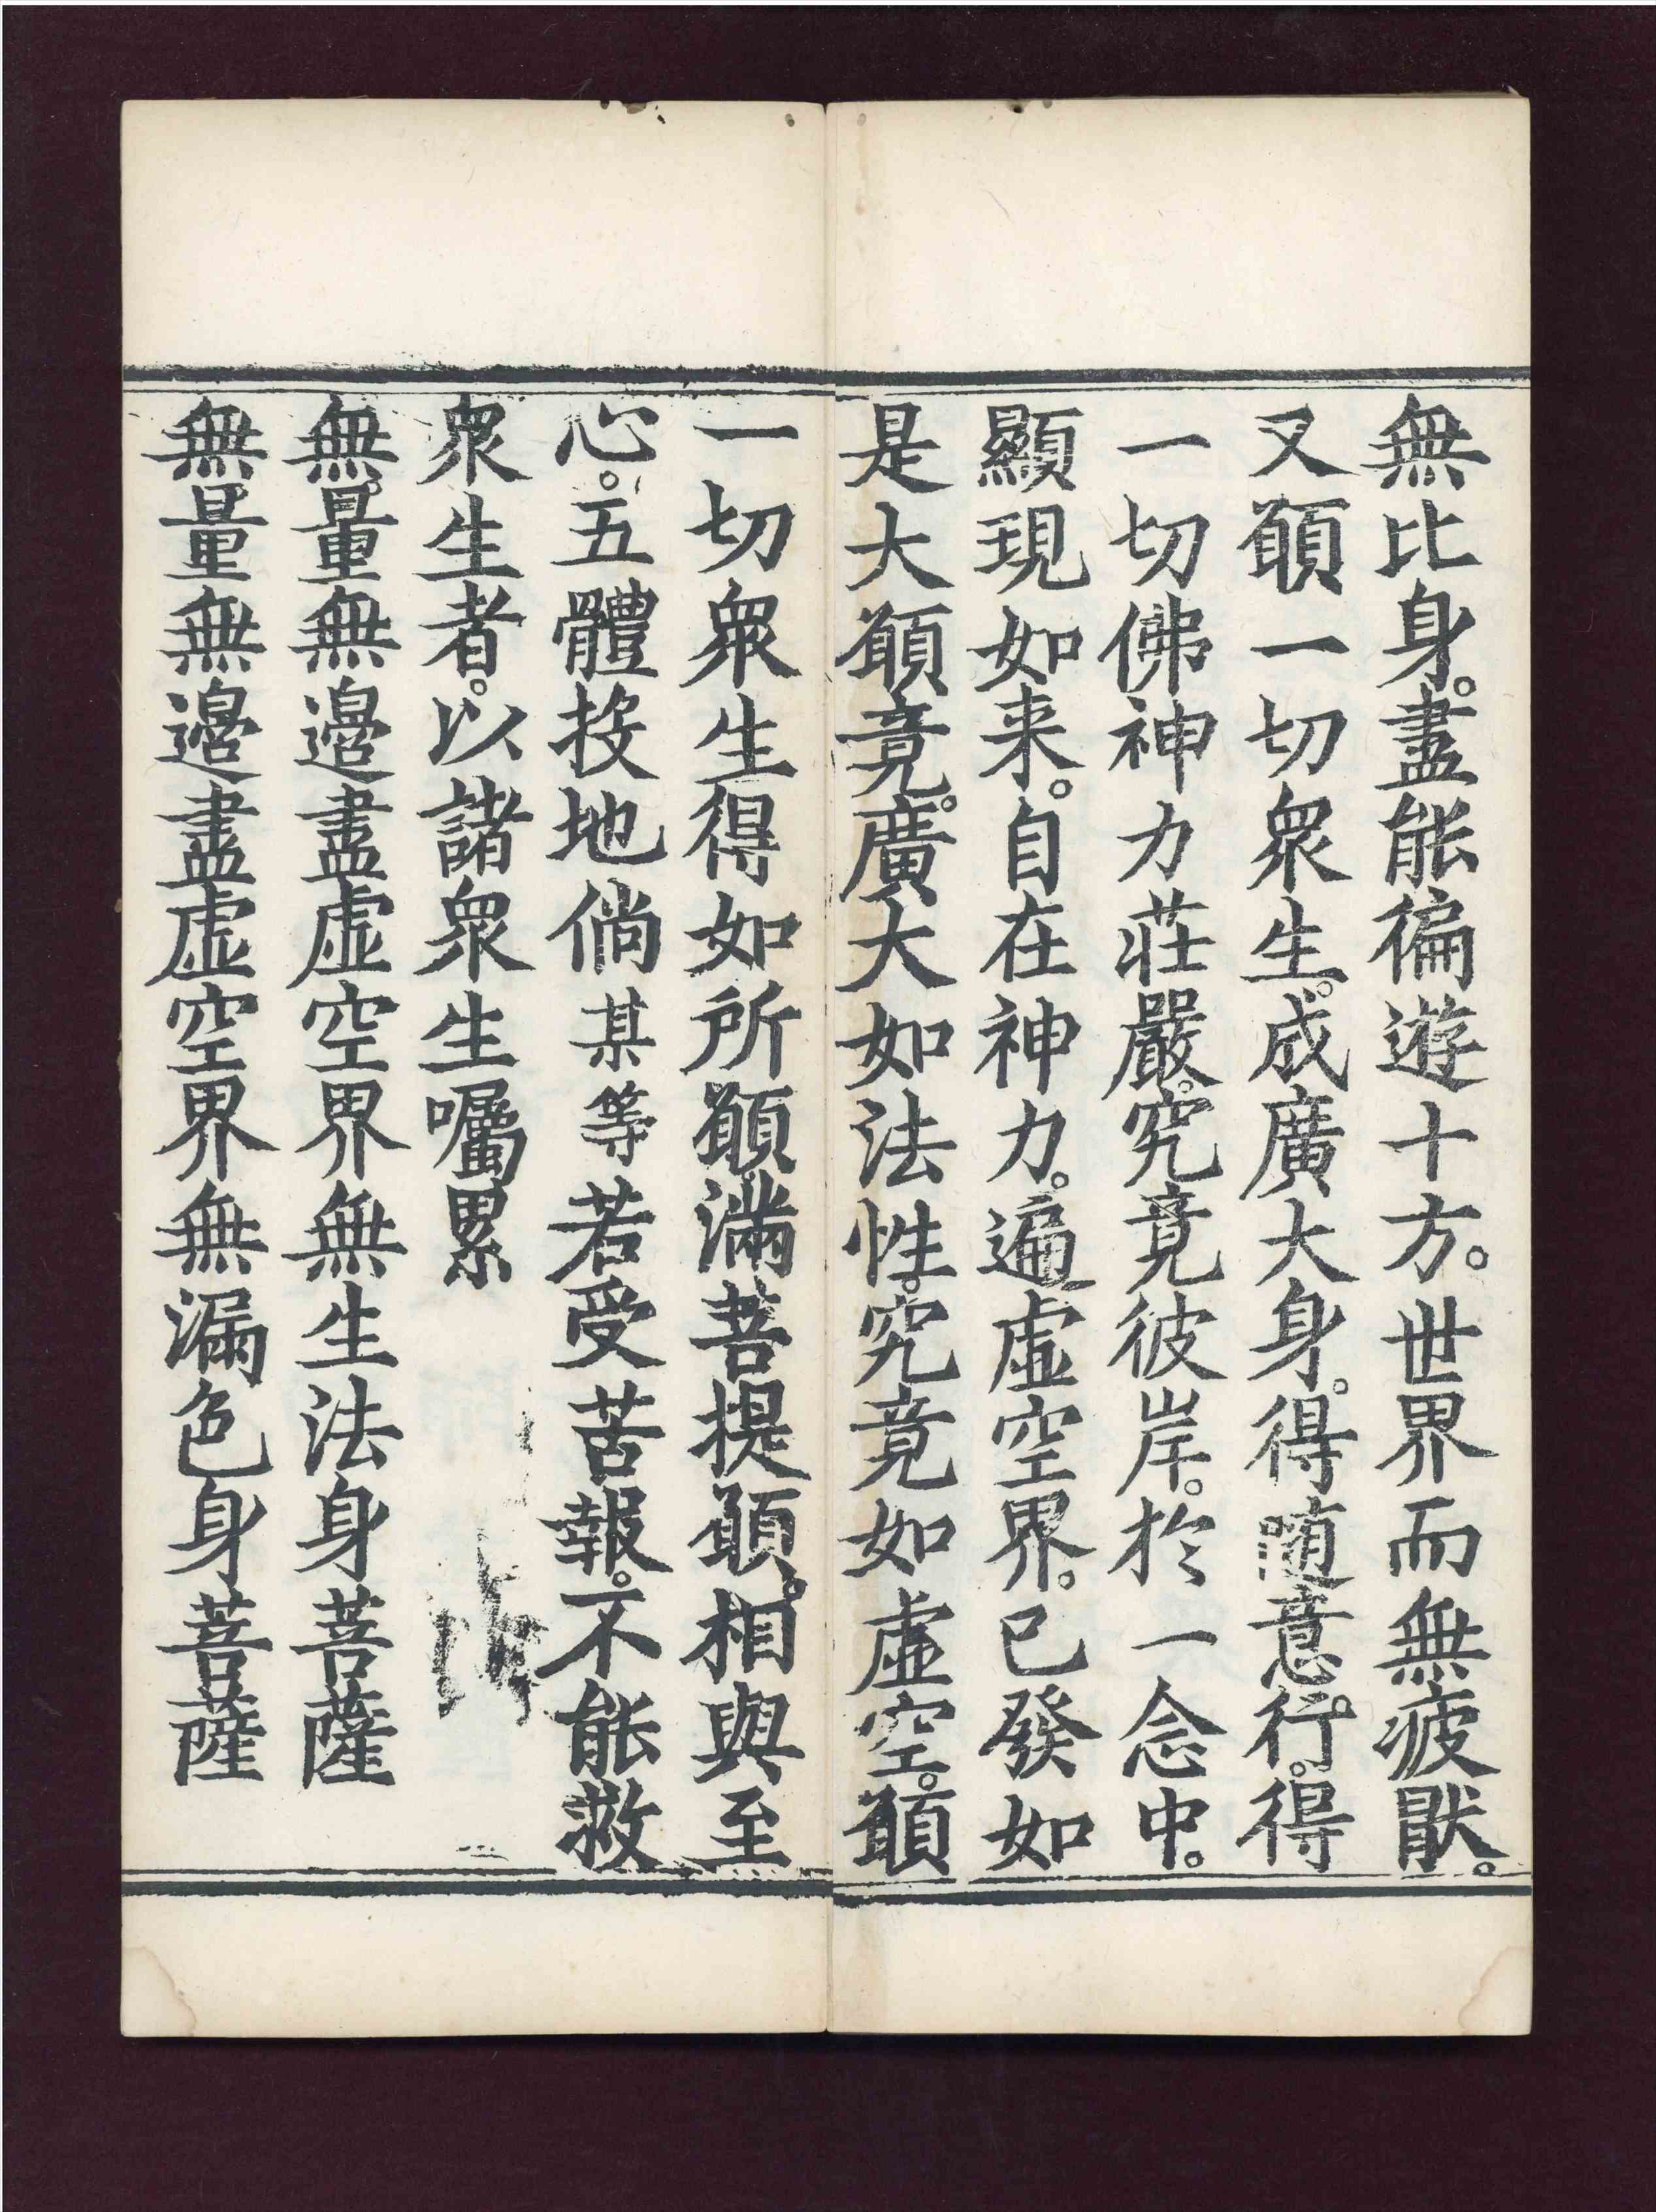 無比身。盡能徧遊十方。世界而無疲猒。
又願一切衆生。成廣大身。得随意行。得
一切佛神力莊嚴。究竟彼岸。於一念中。
顯現如来。自在神力。遍虛空界。已發如
是大願竟。廣大如法性。究竟如虛空。願
一切衆生得如所願滿菩提願。相與至
心。五體投地倘某等若受苦報。不能救
衆生者。以諸衆生囑累
無量無邊盡虛空界無生法身菩薩
無量無邊盡虛空界無漏色身菩薩